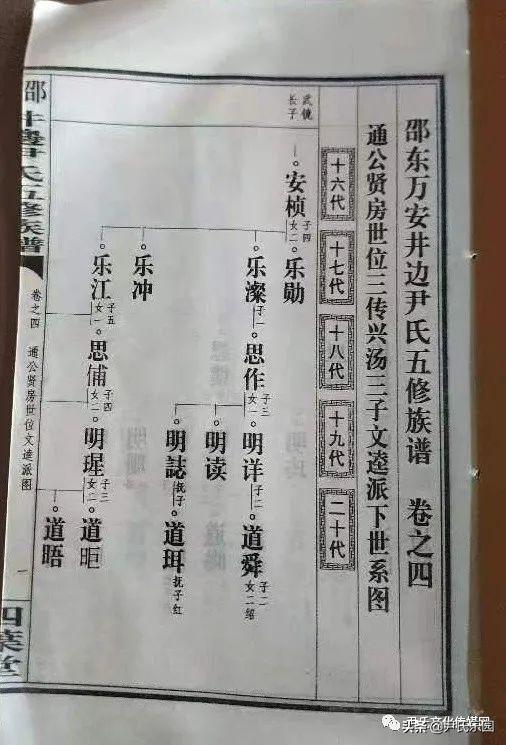 邵东万安井边尹氏五修族谱 卷之四
通公贤房世位三传兴汤三子文逵派下世系图
十六代
十七代
十八代
十九代
二十代
武镜
长子
安桢
子四
女二
乐勋
乐濴
子一
思作
子三
女一
明详
子二
道舜
子二
女二绍
明读
明誌
抚子
道珥
抚子红
乐冲
乐江
子五
女一
思俌
子四
女二
明瑆
子三
女二
道昛
道晤
卷之四 通公贤房世位文逵派图
一
头条 @尹氏乐园